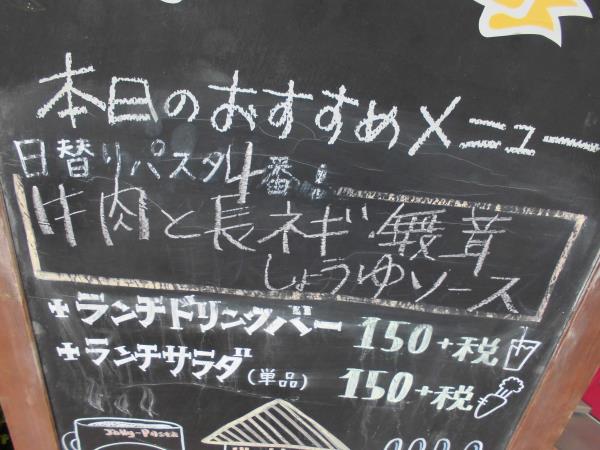 本日のおすすめメニュー
日替りパスタ4番!
牛肉と長ネギ・舞茸
しょうゆソース
+ランチドリンクバー 150+税
+ランチサラダ(単品) 150+税
Jolly-Pasta